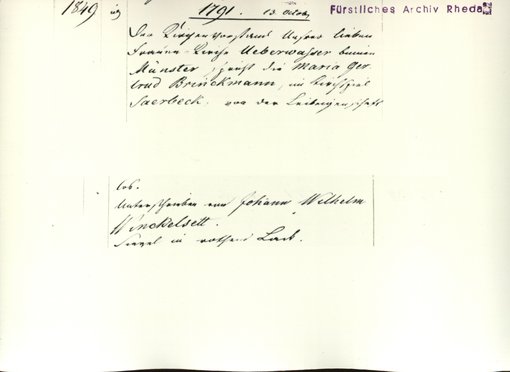 1849 1791. 13. October Fürstliches Archiv Rheda
Der Kirchenvorstand Unser lieben
Frauen-Kirche Ueberwasser binnen
Münster, spricht die Maria Ger
trud Brinckmann, im Kirchspiel
Saerbeck, von der Leibeigenschaft
los.
Unterschrieben von Johann Wilhelm
Winckelsett.
Siegel in rothem Lack.